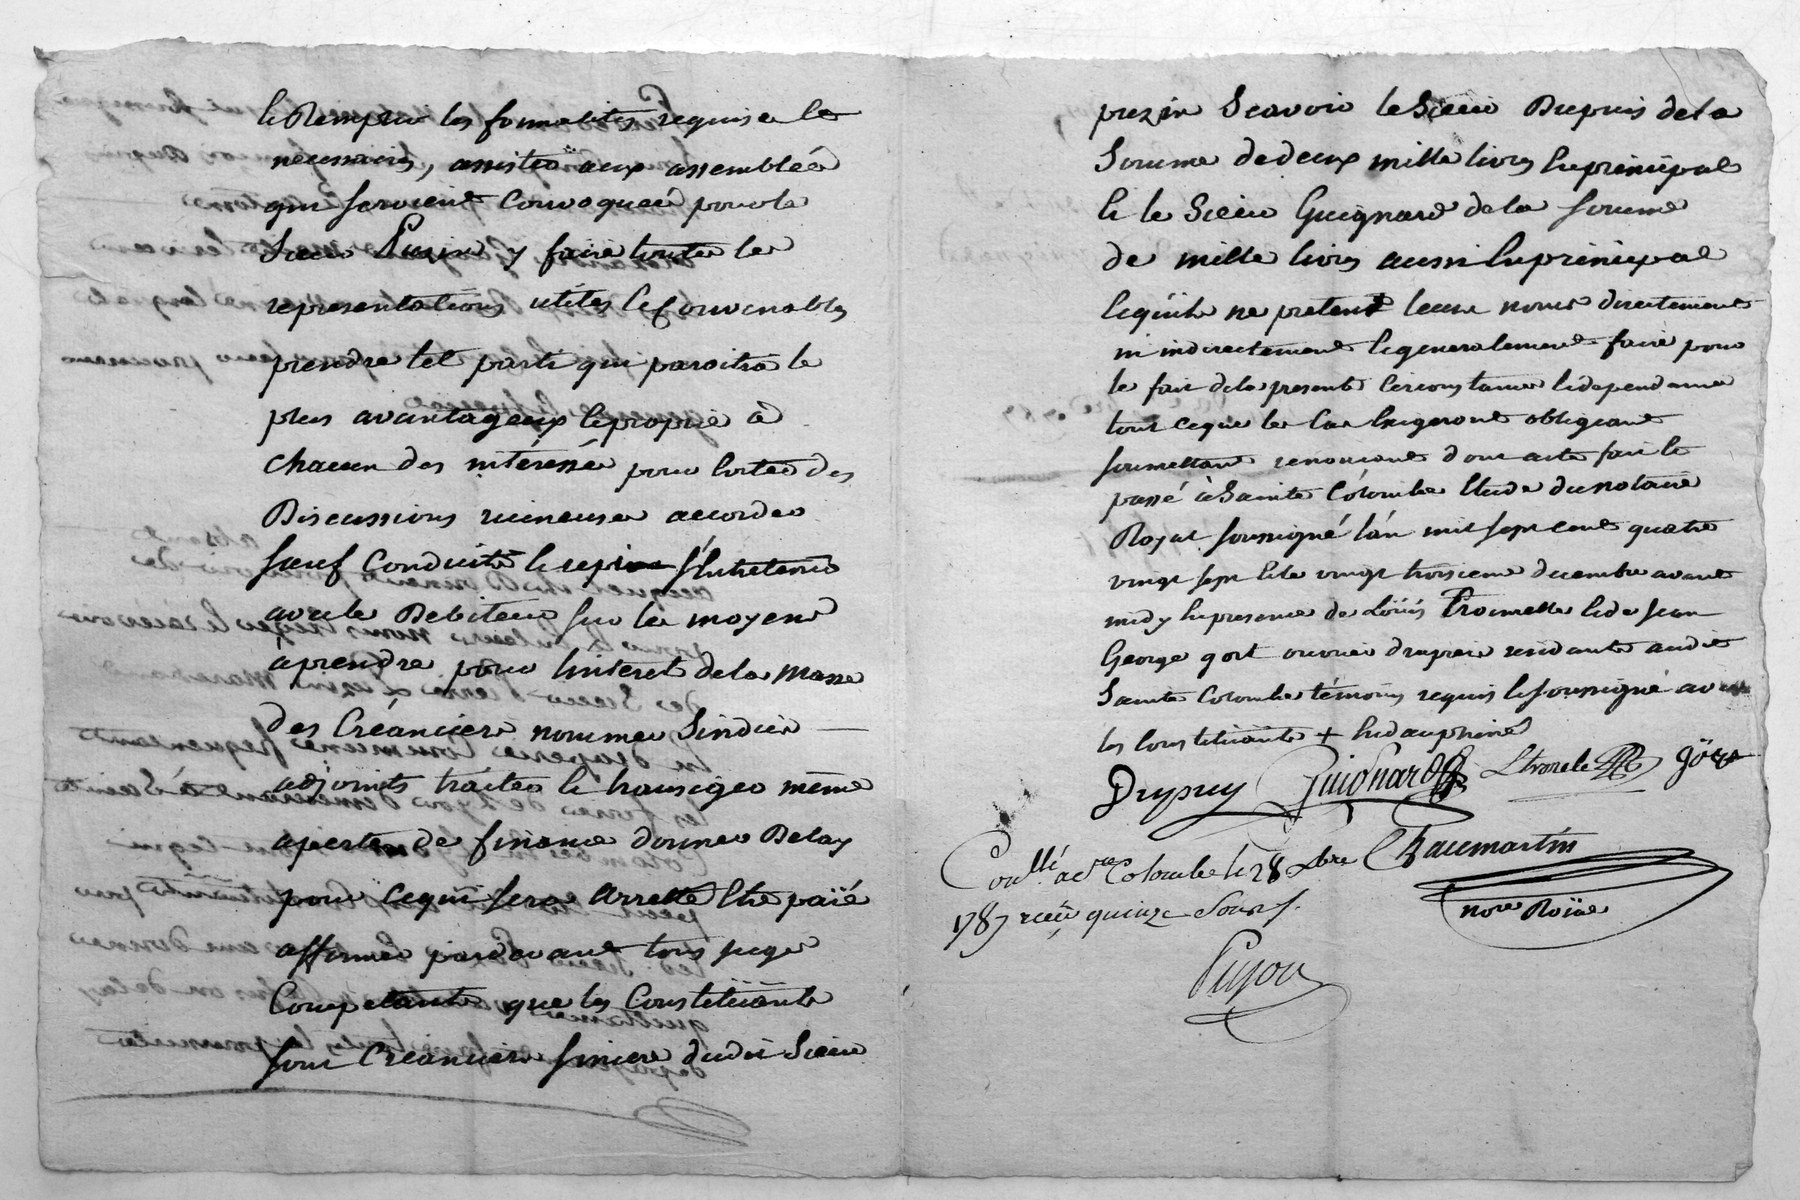 et Remplir les formalités requise et
necessaires, assister aux assembleé
qui seroient Convoqueé pour le
Sieur y faire toutes les
representations utiles et Convenables
prendre tel parti qui paroitra le
plus avantageux et propre a
chacun des intéressé pour Eviter des
Discussions ruineuses accorder
sauf Conduit et s'Entretenir
avec le Debiteur sur les moyens
à prendre pour linteret de la Masse
des Créanciers nommer Sindics
adjoints traiter et transiger même
a perte de finance donner Delay
pour ce qui sera Arretté Etre païé
affirmer pardevant tous juges
Competants que les Constitüants
sont Creanciers sincere dudit Sieur
prezin Scavoir le Sieur Dupuis de la
Somme de deux mille livres En principal
Et le Sieur Guignard de la somme
de mille livres aussi En principal
Et qu'ils ne pretent leurs noms directement
ni indirectement Et generalement faire pour
le fait de la presente Circonstances Et dependances
tout ce que les Cas Exigeront obligeant
soumettant renonçant dont acte fait Et
passé à Sainte Colombe Etude du notaire
Royal soussigné l'an mil sept cent quatre
vingt sept Et le vingt troisieme decembre avant
midy En presence de Loüis Et de Jean
George gort ouvrier drapier residants audit
Sainte Colombe témoins requis Et soussigné avec
les Constitüants + En dauphiné
Dupuy Guignard
Chaumartin
Conllé a Ste Colombe le 28 Xbre
1787 reçu quinze Sous
nore Roïal